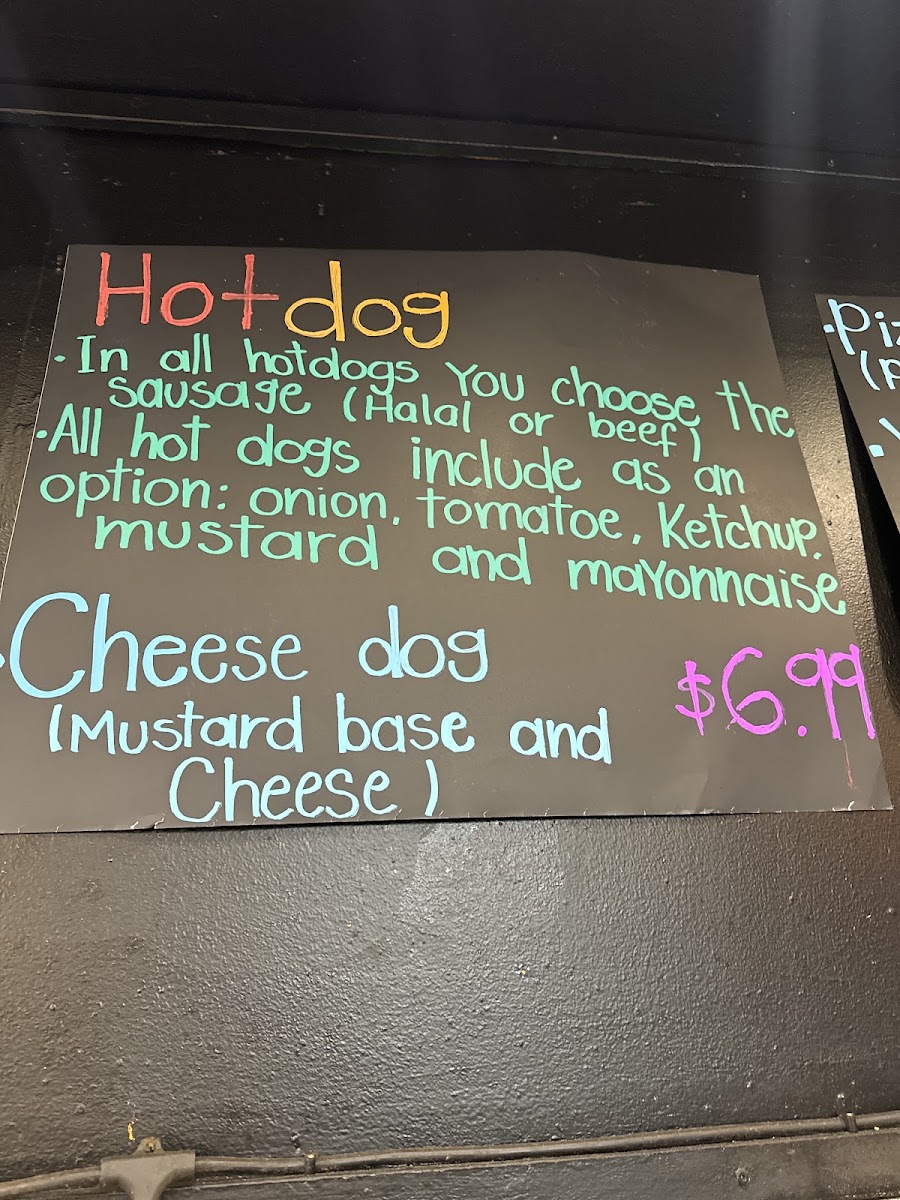 Hotdog
• In all hotdogs you choose the
sausage (Halal or beef)
• All hot dogs include as an
option: onion, tomatoe, Ketchup,
mustard and mayonnaise
• Cheese dog
$6.99
(Mustard base and
Cheese)